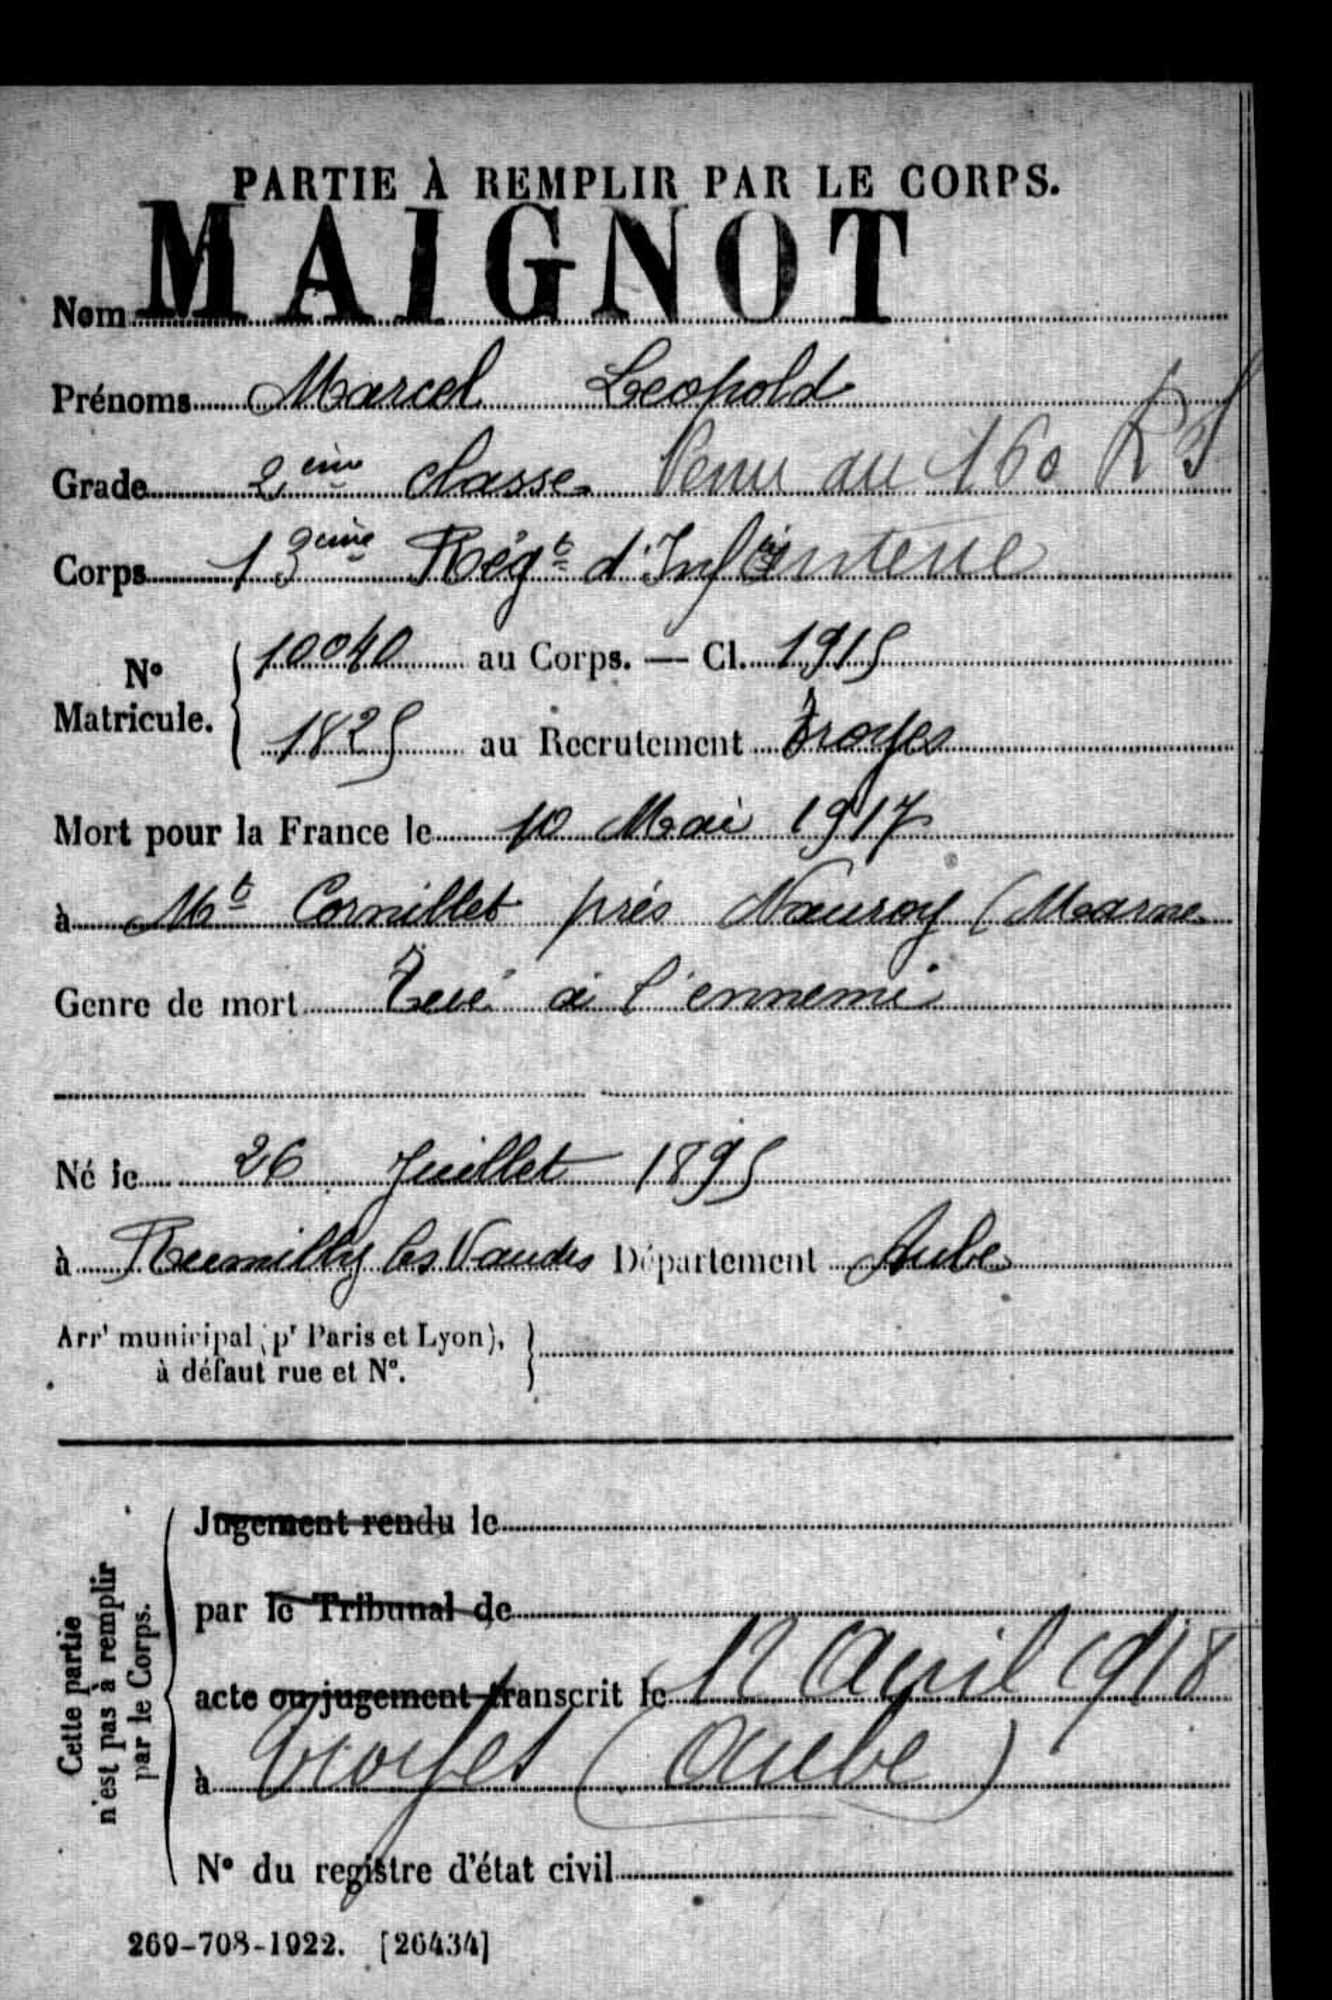 PARTIE À REMPLIR PAR LE CORPS.
Nom MAIGNOT
Prénoms Marcel Leopold
Grade 2ème classe Venu du 160 RI
Corps 13ème Régt d'Infanterie
N° Matricule. { 10040 au Corps. — Cl. 1915
1825 au Recrutement Troyes
Mort pour la France le 10 Mai 1917
à Mt Cornillet près Nauroy (Marne
Genre de mort Tué à l'ennemi
Né le 26 Juillet 1895
à Rumilly les Vaudes Département Aube
Arrt municipal (pr Paris et Lyon), à défaut rue et N°.
Cette partie n'est pas à remplir par le Corps.
Jugement rendu le
par le Tribunal de
acte ou jugement transcrit le 12 Avril 1918
à Troyes (Aube)
N° du registre d'état civil
269-708-1922. [26434]